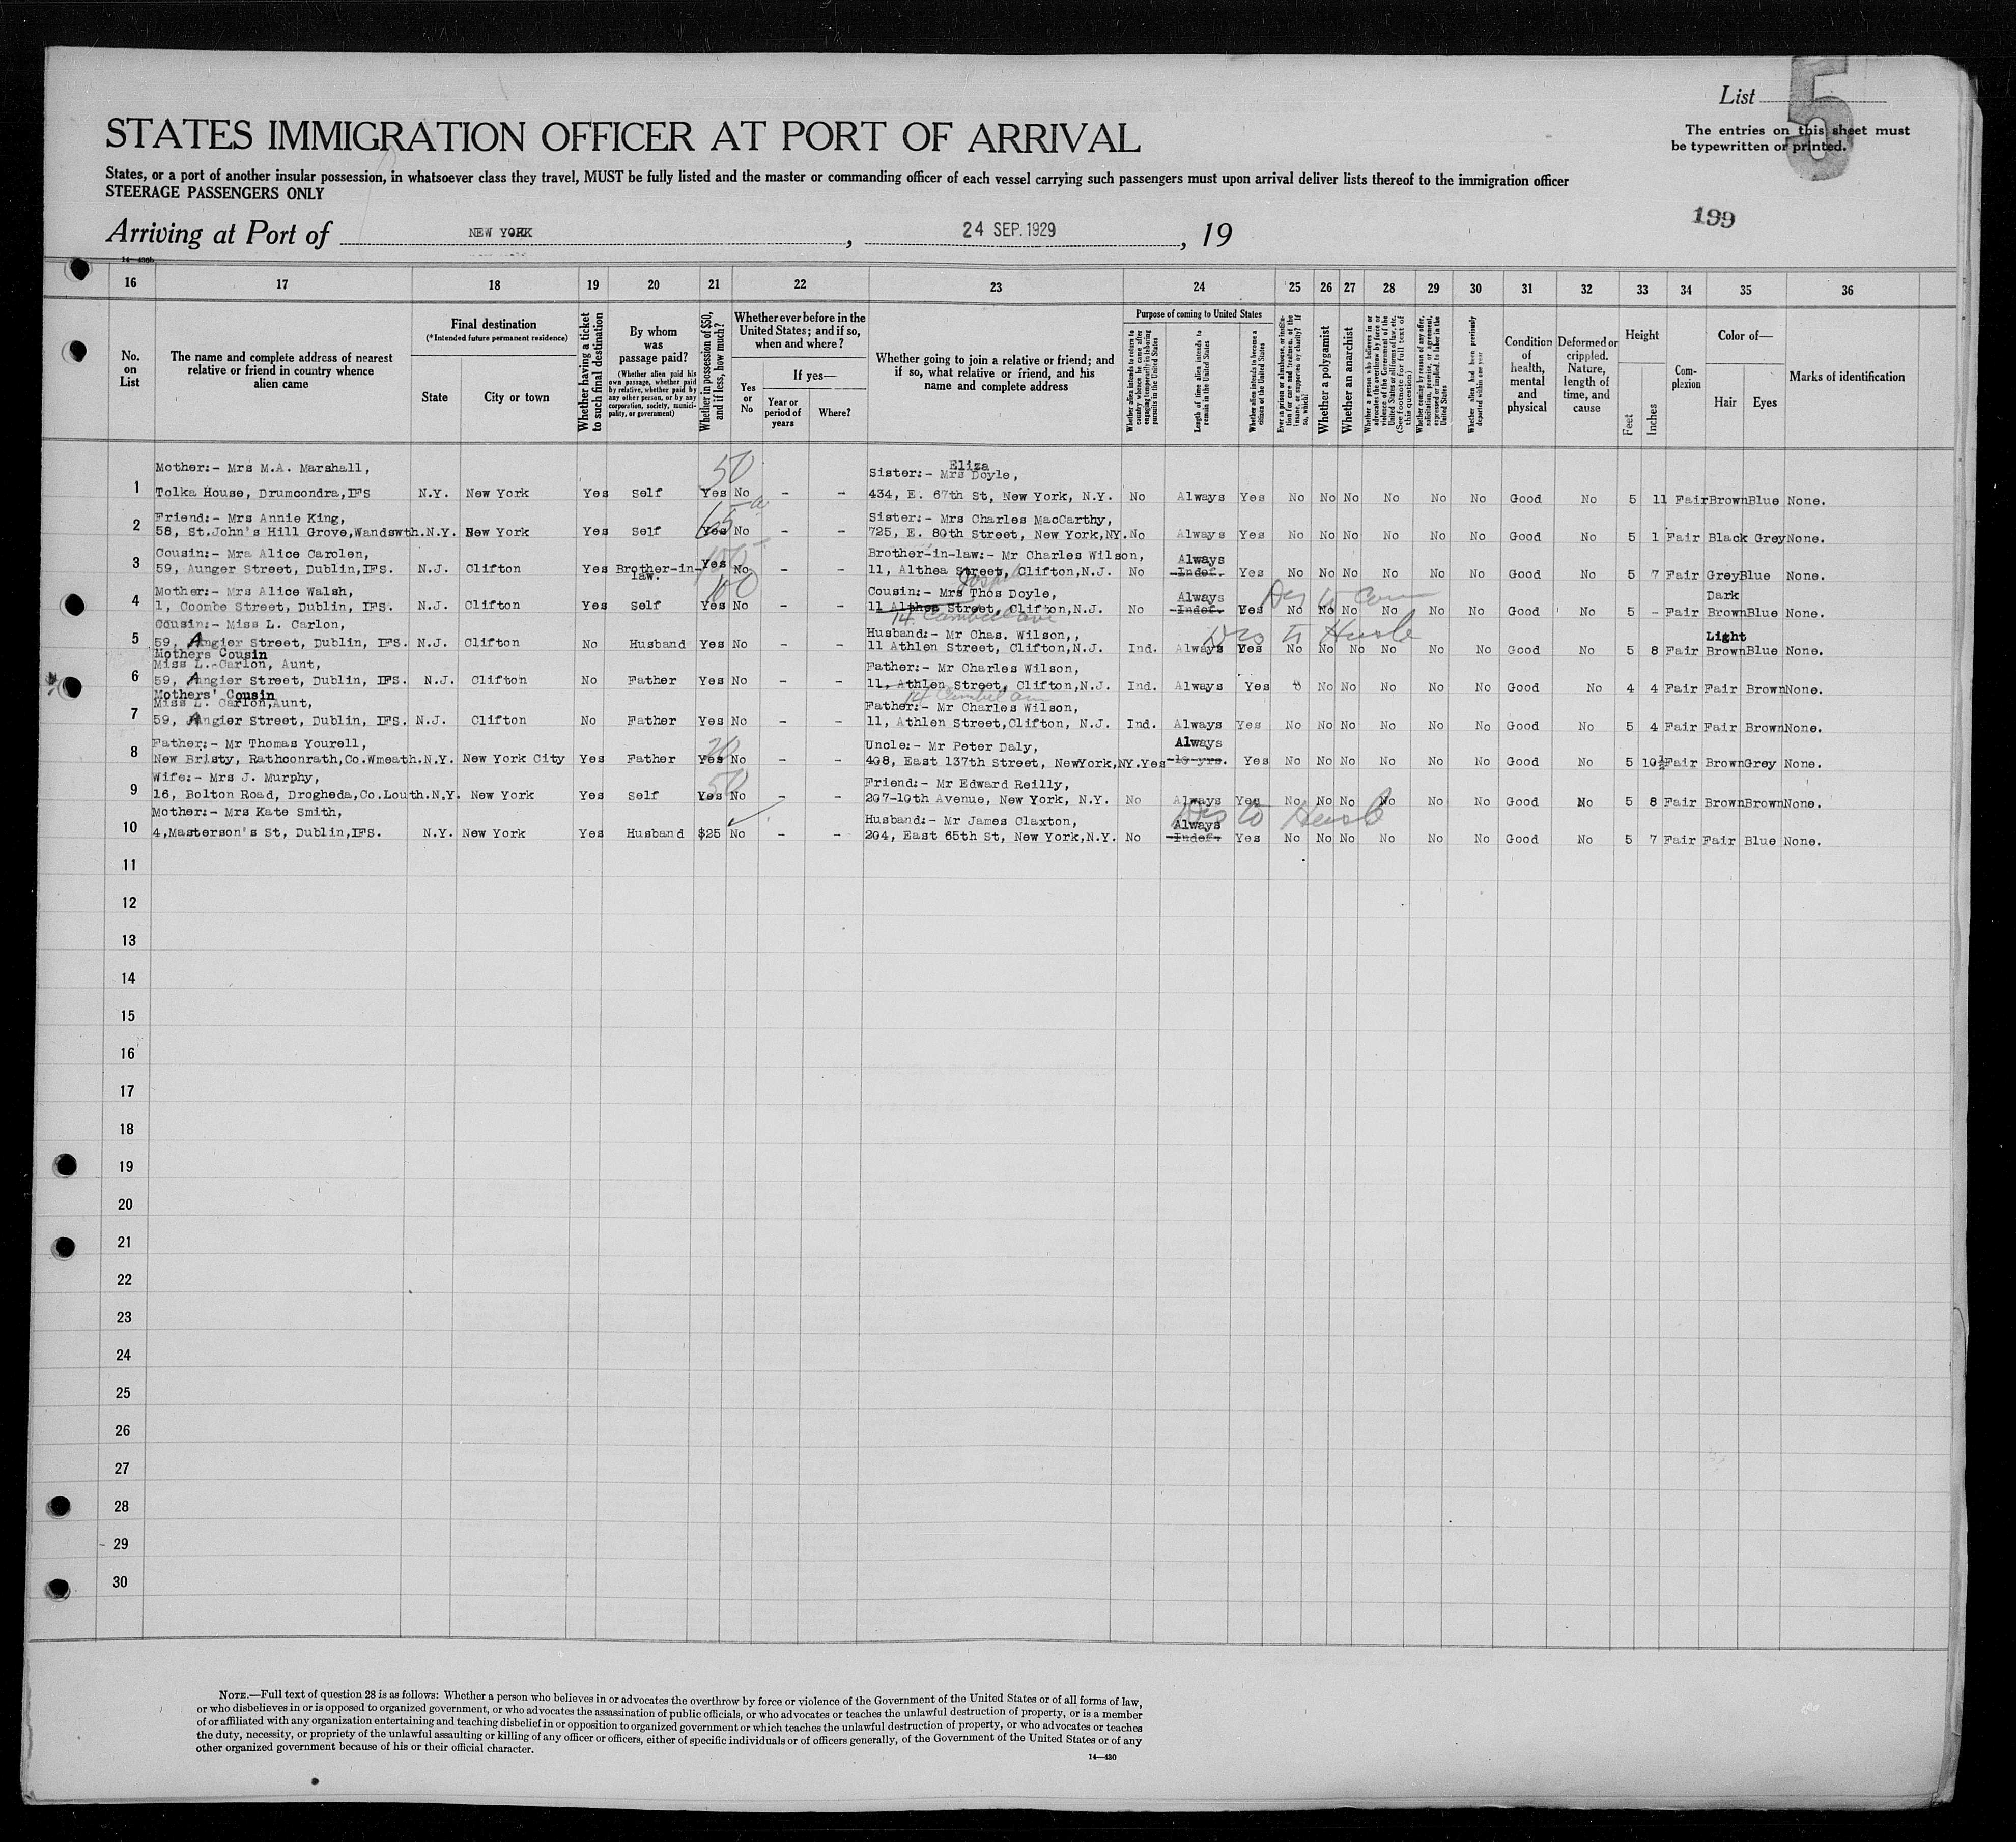 List
5
The entries on this sheet must
be typewritten or printed.
STATES IMMIGRATION OFFICER AT PORT OF ARRIVAL
States, or a port of another insular possession, in whatsoever class they travel, MUST be fully listed and the master or commanding officer of each vessel carrying such passengers must upon arrival deliver lists thereof to the immigration officer
STEERAGE PASSENGERS ONLY
199
Arriving at Port of NEW YORK, 24 SEP. 1929, 19
14—430b
16 17 18 19 20 21 22 23 24 25 26 27 28 29 30 31 32 33 34 35 36
No. on List
The name and complete address of nearest relative or friend in country whence alien came
Final destination
(*Intended future permanent residence)
State
City or town
Whether having a ticket to such final destination
By whom was passage paid?
(Whether alien paid his own passage, whether paid by relative, whether paid by any other person, or by any corporation, society, municipality, or government)
Whether in possession of $50, and if less, how much?
Whether ever before in the United States; and if so, when and where?
Yes or No
If yes—
Year or period of years
Where?
Whether going to join a relative or friend; and if so, what relative or friend, and his name and complete address
Purpose of coming to United States
Whether alien intends to return to country whence he came after engaging temporarily in laboring pursuits in the United States
Length of time alien intends to remain in the United States
Whether alien intends to become a citizen of the United States
Ever in prison or almshouse, or institution for care and treatment of the insane, or supported by charity? If so, which?
Whether a polygamist
Whether an anarchist
Whether a person who believes in or advocates the overthrow by force or violence of the Government of the United States or all forms of law, etc. (See footnote for full text of this question)
Whether coming by reason of any offer, solicitation, promise, or agreement, expressed or implied, to labor in the United States
Whether alien had been previously deported within one year
Condition of health, mental and physical
Deformed or crippled. Nature, length of time, and cause
Height
Feet
Inches
Complexion
Color of—
Hair
Eyes
Marks of identification
Mother:- Mrs M.A. Marshall, 50 Sister:- Mrs Eliza Doyle,
1 Tolka House, Drumcondra,IFS N.Y. New York Yes Self Yes No - - 434, E. 67th St, New York, N.Y. No Always Yes No No No No No No Good No 5 11 Fair Brown Blue None.
Friend:- Mrs Annie King, 65 Sister:- Mrs Charles MacCarthy,
2 58, St.John's Hill Grove,Wandswth. N.Y. New York Yes Self Yes No - - 725, E. 80th Street, New York,NY. No Always Yes No No No No No No Good No 5 1 Fair Black Grey None.
Cousin:- Mrs Alice Carolen, 100 Brother-in-law:- Mr Charles Wilson, Always
3 59, Aunger Street, Dublin,IFS. N.J. Clifton Yes Brother-in-law. Yes No - - 11, Althea Street, Clifton,N.J. No Indef. Yes No No No No No No Good No 5 7 Fair Grey Blue None.
Mother:- Mrs Alice Walsh, 100 Cousin:- Mrs Thos Doyle, Always Dark
4 1, Coombe Street, Dublin, IFS. N.J. Clifton Yes Self Yes No - - 11 Althea Street, Clifton,N.J. No Indef. Yes No No No No No No Good No 5 - Fair Brown Blue None.
Cousin:- Miss L. Carlon, Husband:- Mr Chas. Wilson,, Des to Husb Light
5 59, Angier Street, Dublin, IFS. N.J. Clifton No Husband Yes No - - 11 Athlen Street, Clifton,N.J. Ind. Always Yes No No No No No No Good No 5 8 Fair Brown Blue None.
Mothers Cousin
Miss L. Carlon, Aunt, Father:- Mr Charles Wilson,
6 59, Angier Street, Dublin, IFS. N.J. Clifton No Father Yes No - - 11, Athlen Street, Clifton,N.J. Ind. Always Yes No No No No No Good No 4 4 Fair Fair Brown None.
Mothers' Cousin
Miss L. Carlon,Aunt, Father:- Mr Charles Wilson,
7 59, Angier Street, Dublin, IFS. N.J. Clifton No Father Yes No - - 11, Athlen Street,Clifton, N.J. Ind. Always Yes No No No No No No Good No 5 4 Fair Fair Brown None.
Father:- Mr Thomas Yourell, 20 Uncle:- Mr Peter Daly, Always
8 New Bristy, Rathconrath,Co.Wmeath. N.Y. New York City Yes Father Yes No - - 408, East 137th Street, NewYork,NY. Yes 10 yrs. Yes No No No No No No Good No 5 10½ Fair Brown Grey None.
Wife:- Mrs J. Murphy, 50 Friend:- Mr Edward Reilly,
9 16, Bolton Road, Drogheda,Co.Louth. N.Y. New York Yes Self Yes No - - 207-10th Avenue, New York, N.Y. No Always Yes No No No No No No Good No 5 8 Fair Brown Brown None.
Mother:- Mrs Kate Smith, Husband:- Mr James Claxton, Always Des to Husb
10 4,Masterson's St, Dublin,IFS. N.Y. New York Yes Husband $25 No - - 204, East 65th St, New York,N.Y. No Indef. Yes No No No No No No Good No 5 7 Fair Fair Blue None.
11
12
13
14
15
16
17
18
19
20
21
22
23
24
25
26
27
28
29
30
NOTE.—Full text of question 28 is as follows: Whether a person who believes in or advocates the overthrow by force or violence of the Government of the United States or of all forms of law,
or who disbelieves in or is opposed to organized government, or who advocates the assassination of public officials, or who advocates or teaches the unlawful destruction of property, or is a member
of or affiliated with any organization entertaining and teaching disbelief in or opposition to organized government or which teaches the unlawful destruction of property, or who advocates or teaches
the duty, necessity, or propriety of the unlawful assaulting or killing of any officer or officers, either of specific individuals or of officers generally, of the Government of the United States or of any
other organized government because of his or their official character.
14—430